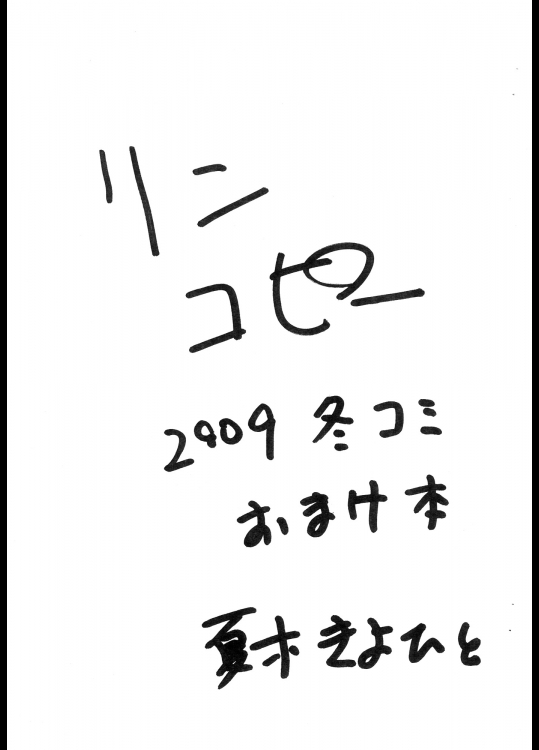 リン
コピー
2009 冬コミ
おまけ本
夏木きよひと